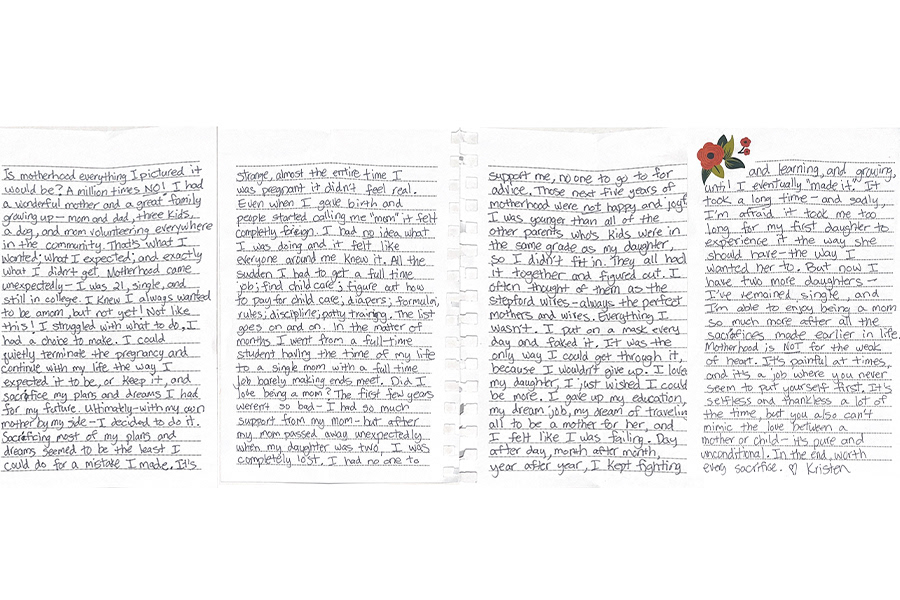 Is motherhood everything I pictured it
would be? A million times NO! I had
a wonderful mother and a great family
growing up - mom and dad, three kids,
a dog, and mom volunteering everywhere
in the community. That's what I
wanted; what I expected; and exactly
what I didn't get. Motherhood came
unexpectedly - I was 21, single, and
still in college. I knew I always wanted
to be a mom, but not yet! Not like
this! I struggled with what to do, I
had a choice to make. I could
quietly terminate the pregnancy and
continue with my life the way I
expected it to be, or keep it, and
sacrifice my plans and dreams I had
for my future. Ultimately - with my own
mother by my side - I decided to do it.
Sacrificing most of my plans and
dreams seemed to be the least I
could do for a mistake I made. It's
strange, almost the entire time I
was pregnant it didn't feel real.
Even when I gave birth and
people started calling me "mom" it felt
completly foreign. I had no idea what
I was doing and it felt like
everyone around me knew it. All the
sudden I had to get a full time
job; find child care; figure out how
to pay for child care; diapers; formula,
rules; discipline; potty training. The list
goes on and on. In the matter of
months I went from a full-time
student having the time of my life
to a single mom with a full time
job barely making ends meet. Did I
love being a mom? The first few years
weren't so bad - I had so much
support from my mom - but after
my mom passed away unexpectedly
when my daughter was two, I was
completely lost. I had no one to
support me, no one to go to for
advice. Those next five years of
motherhood were not happy and joyf
I was younger than all of the
other parents who's kids were in
the same grade as my daughter,
so I didn't fit in. They all had
it together and figured out. I
often thought of them as the
stepford wives - always the perfect
mothers and wives. Everything I
wasn't. I put on a mask every
day and faked it. It was the
only way I could get through it,
because I wouldn't give up. I love
my daughter, I just wished I could
be more. I gave up my education,
my dream job, my dream of travelin
all to be a mother for her, and
I felt like I was failing. Day
after day, month after month,
year after year, I kept fighting
and learning, and growing,
until I eventually "made it". It
took a long time - and sadly,
I'm afraid it took me too
long for my first daughter to
experience it the way she
should have - the way I
wanted her to. But now I
have two more daughters -
I've remained single, and
I'm able to enjoy being a mom
so much more after all the
sacrifices made earlier in life.
Motherhood is NOT for the weak
of heart. It's painful at times,
and it's a job where you never
seem to put yourself first. It's
selfless and thankless a lot of
the time, but you also can't
mimic the love between a
mother or child - it's pure and
unconditional. In the end, worth
every sacrifice. ♡ Kristen